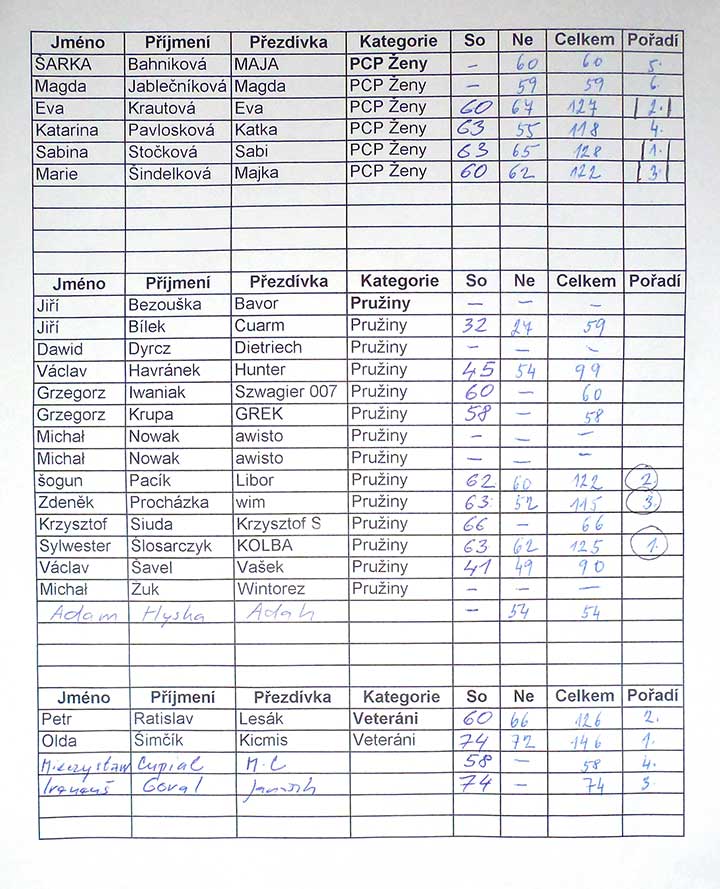 Jméno Příjmení Přezdívka Kategorie So Ne Celkem Pořadí
ŠARKA Bahniková MAJA PCP Ženy – 60 60 5.
Magda Jablečníková Magda PCP Ženy – 59 59 6.
Eva Krautová Eva PCP Ženy 60 67 127 2.
Katarina Pavlosková Katka PCP Ženy 63 55 118 4.
Sabina Stočková Sabi PCP Ženy 63 65 128 1.
Marie Šindelková Majka PCP Ženy 60 62 122 3.
Jméno Příjmení Přezdívka Kategorie So Ne Celkem Pořadí
Jiří Bezouška Bavor Pružiny – – –
Jiří Bílek Cuarm Pružiny 32 27 59
Dawid Dyrcz Dietriech Pružiny – – –
Václav Havránek Hunter Pružiny 45 54 99
Grzegorz Iwaniak Szwagier 007 Pružiny 60 – 60
Grzegorz Krupa GREK Pružiny 58 – 58
Michał Nowak awisto Pružiny – – –
Michał Nowak awisto Pružiny – – –
šogun Pacík Libor Pružiny 62 60 122 2.
Zdeněk Procházka wim Pružiny 63 52 115 3.
Krzysztof Siuda Krzysztof S Pružiny 66 – 66
Sylwester Šlosarczyk KOLBA Pružiny 63 62 125 1.
Václav Šavel Vašek Pružiny 41 49 90
Michał Žuk Wintorez Pružiny – – –
Adam Hyska Adah – 54 54
Jméno Příjmení Přezdívka Kategorie So Ne Celkem Pořadí
Petr Ratislav Lesák Veteráni 60 66 126 2.
Olda Šimčík Kicmis Veteráni 74 72 146 1.
Cupial M.C 58 – 58 4.
Goral 74 – 74 3.